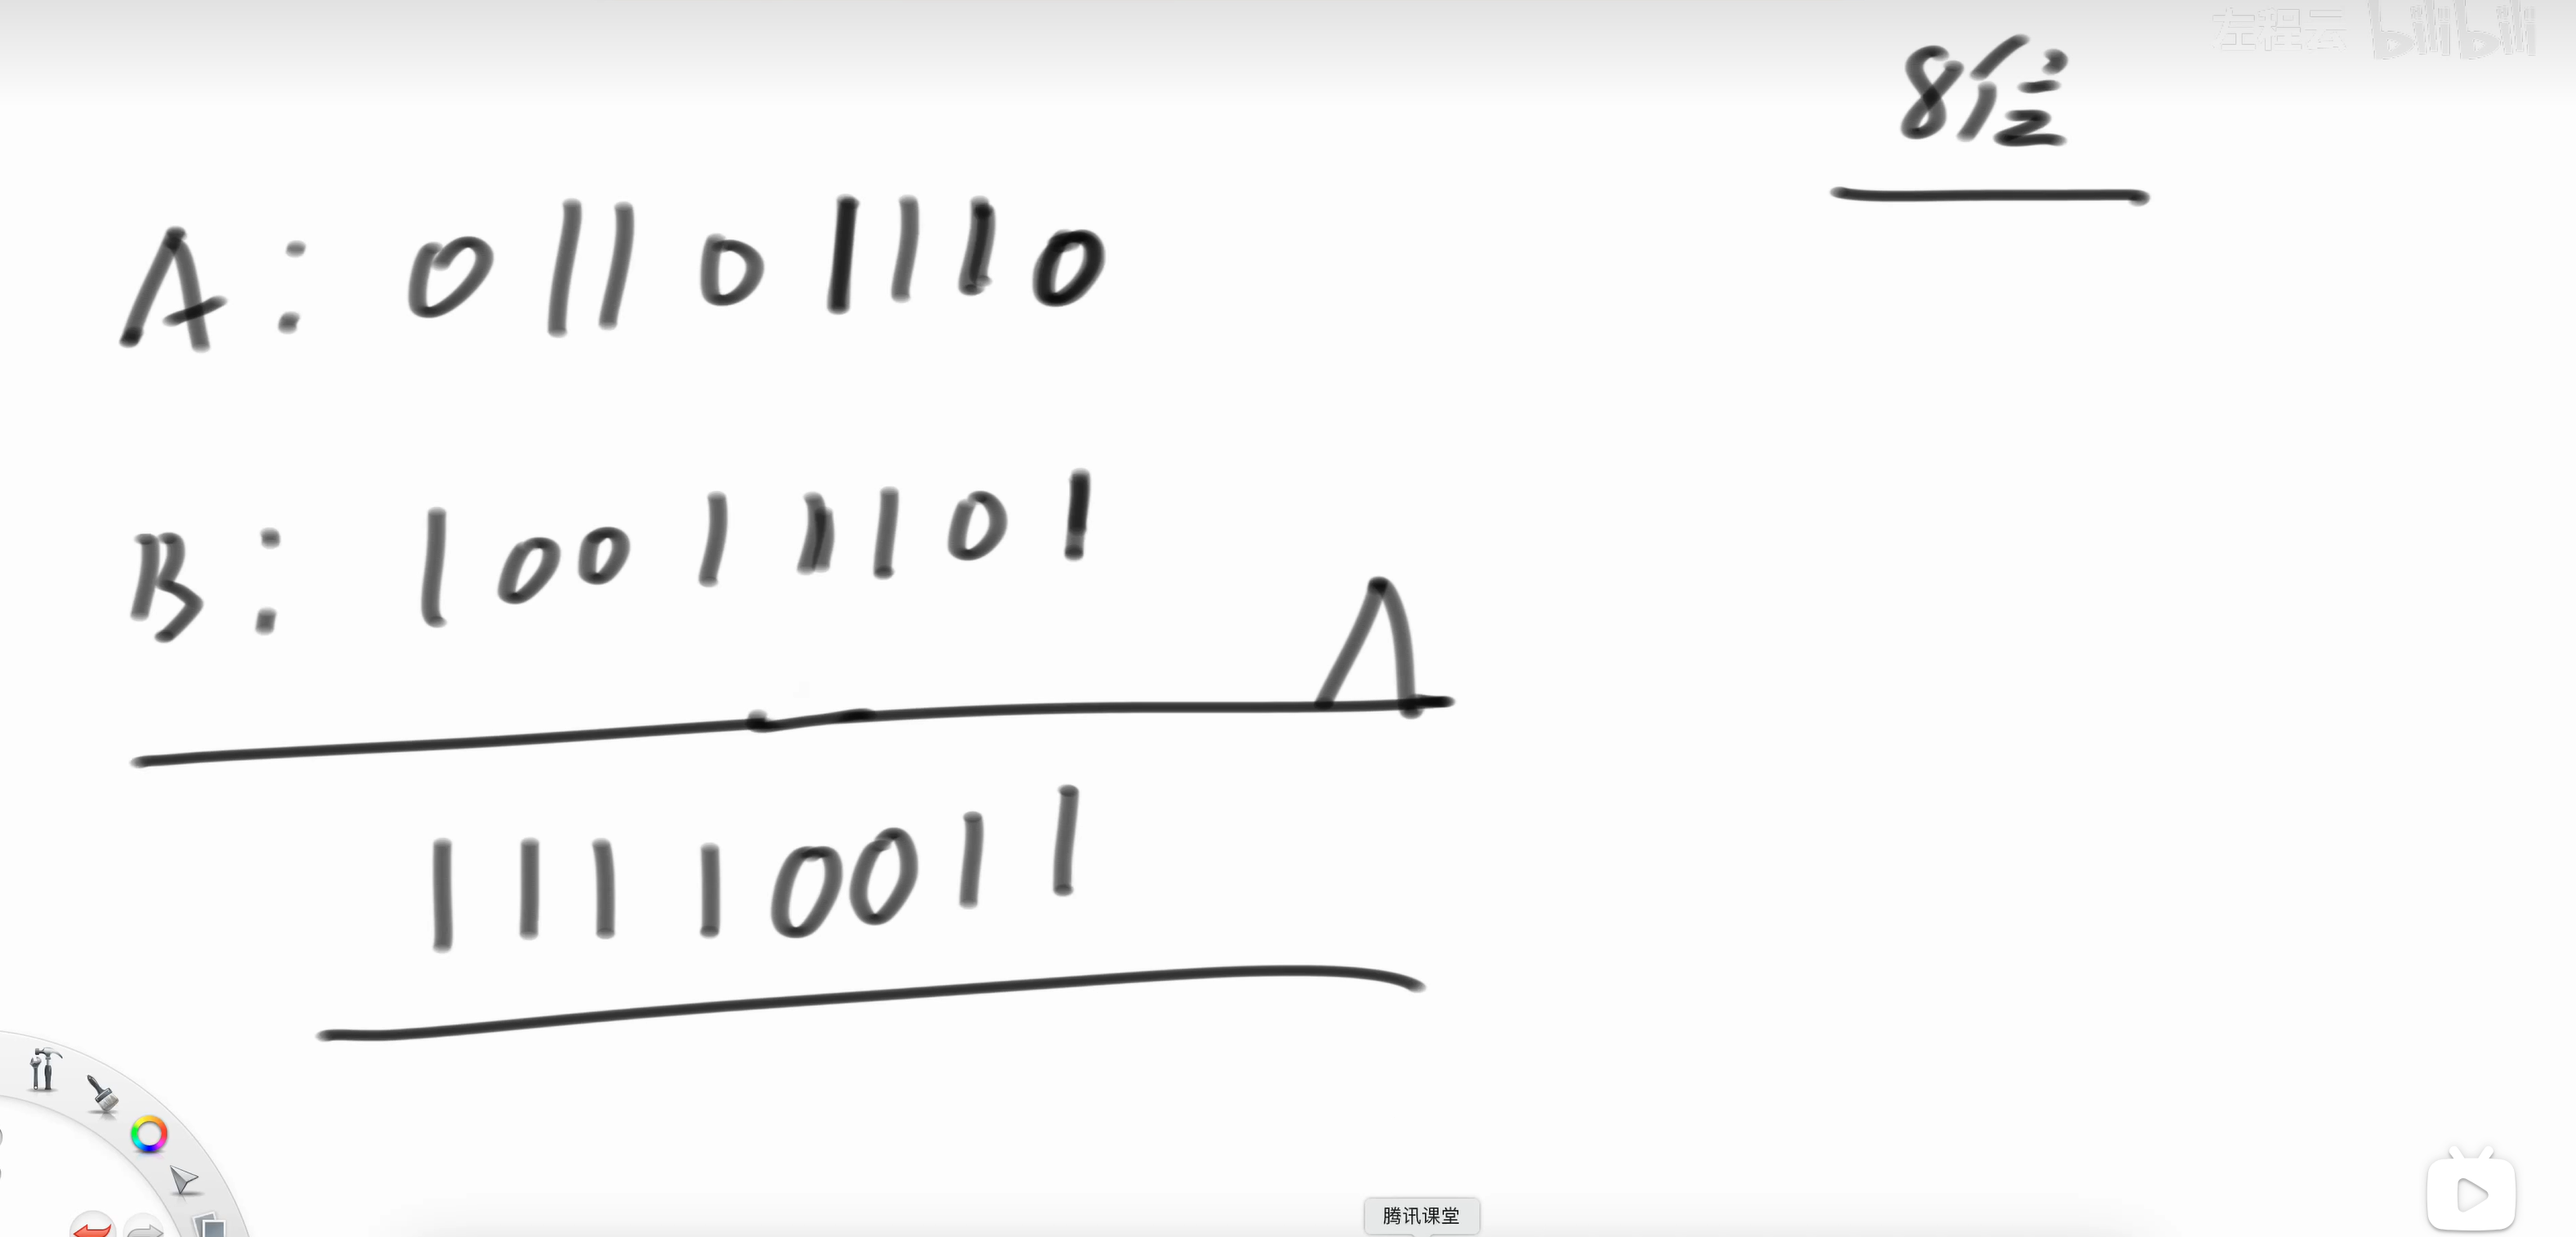 左程云 bilibili
8位
A: 01101110
B: 10011101
^
11110011
腾讯课堂